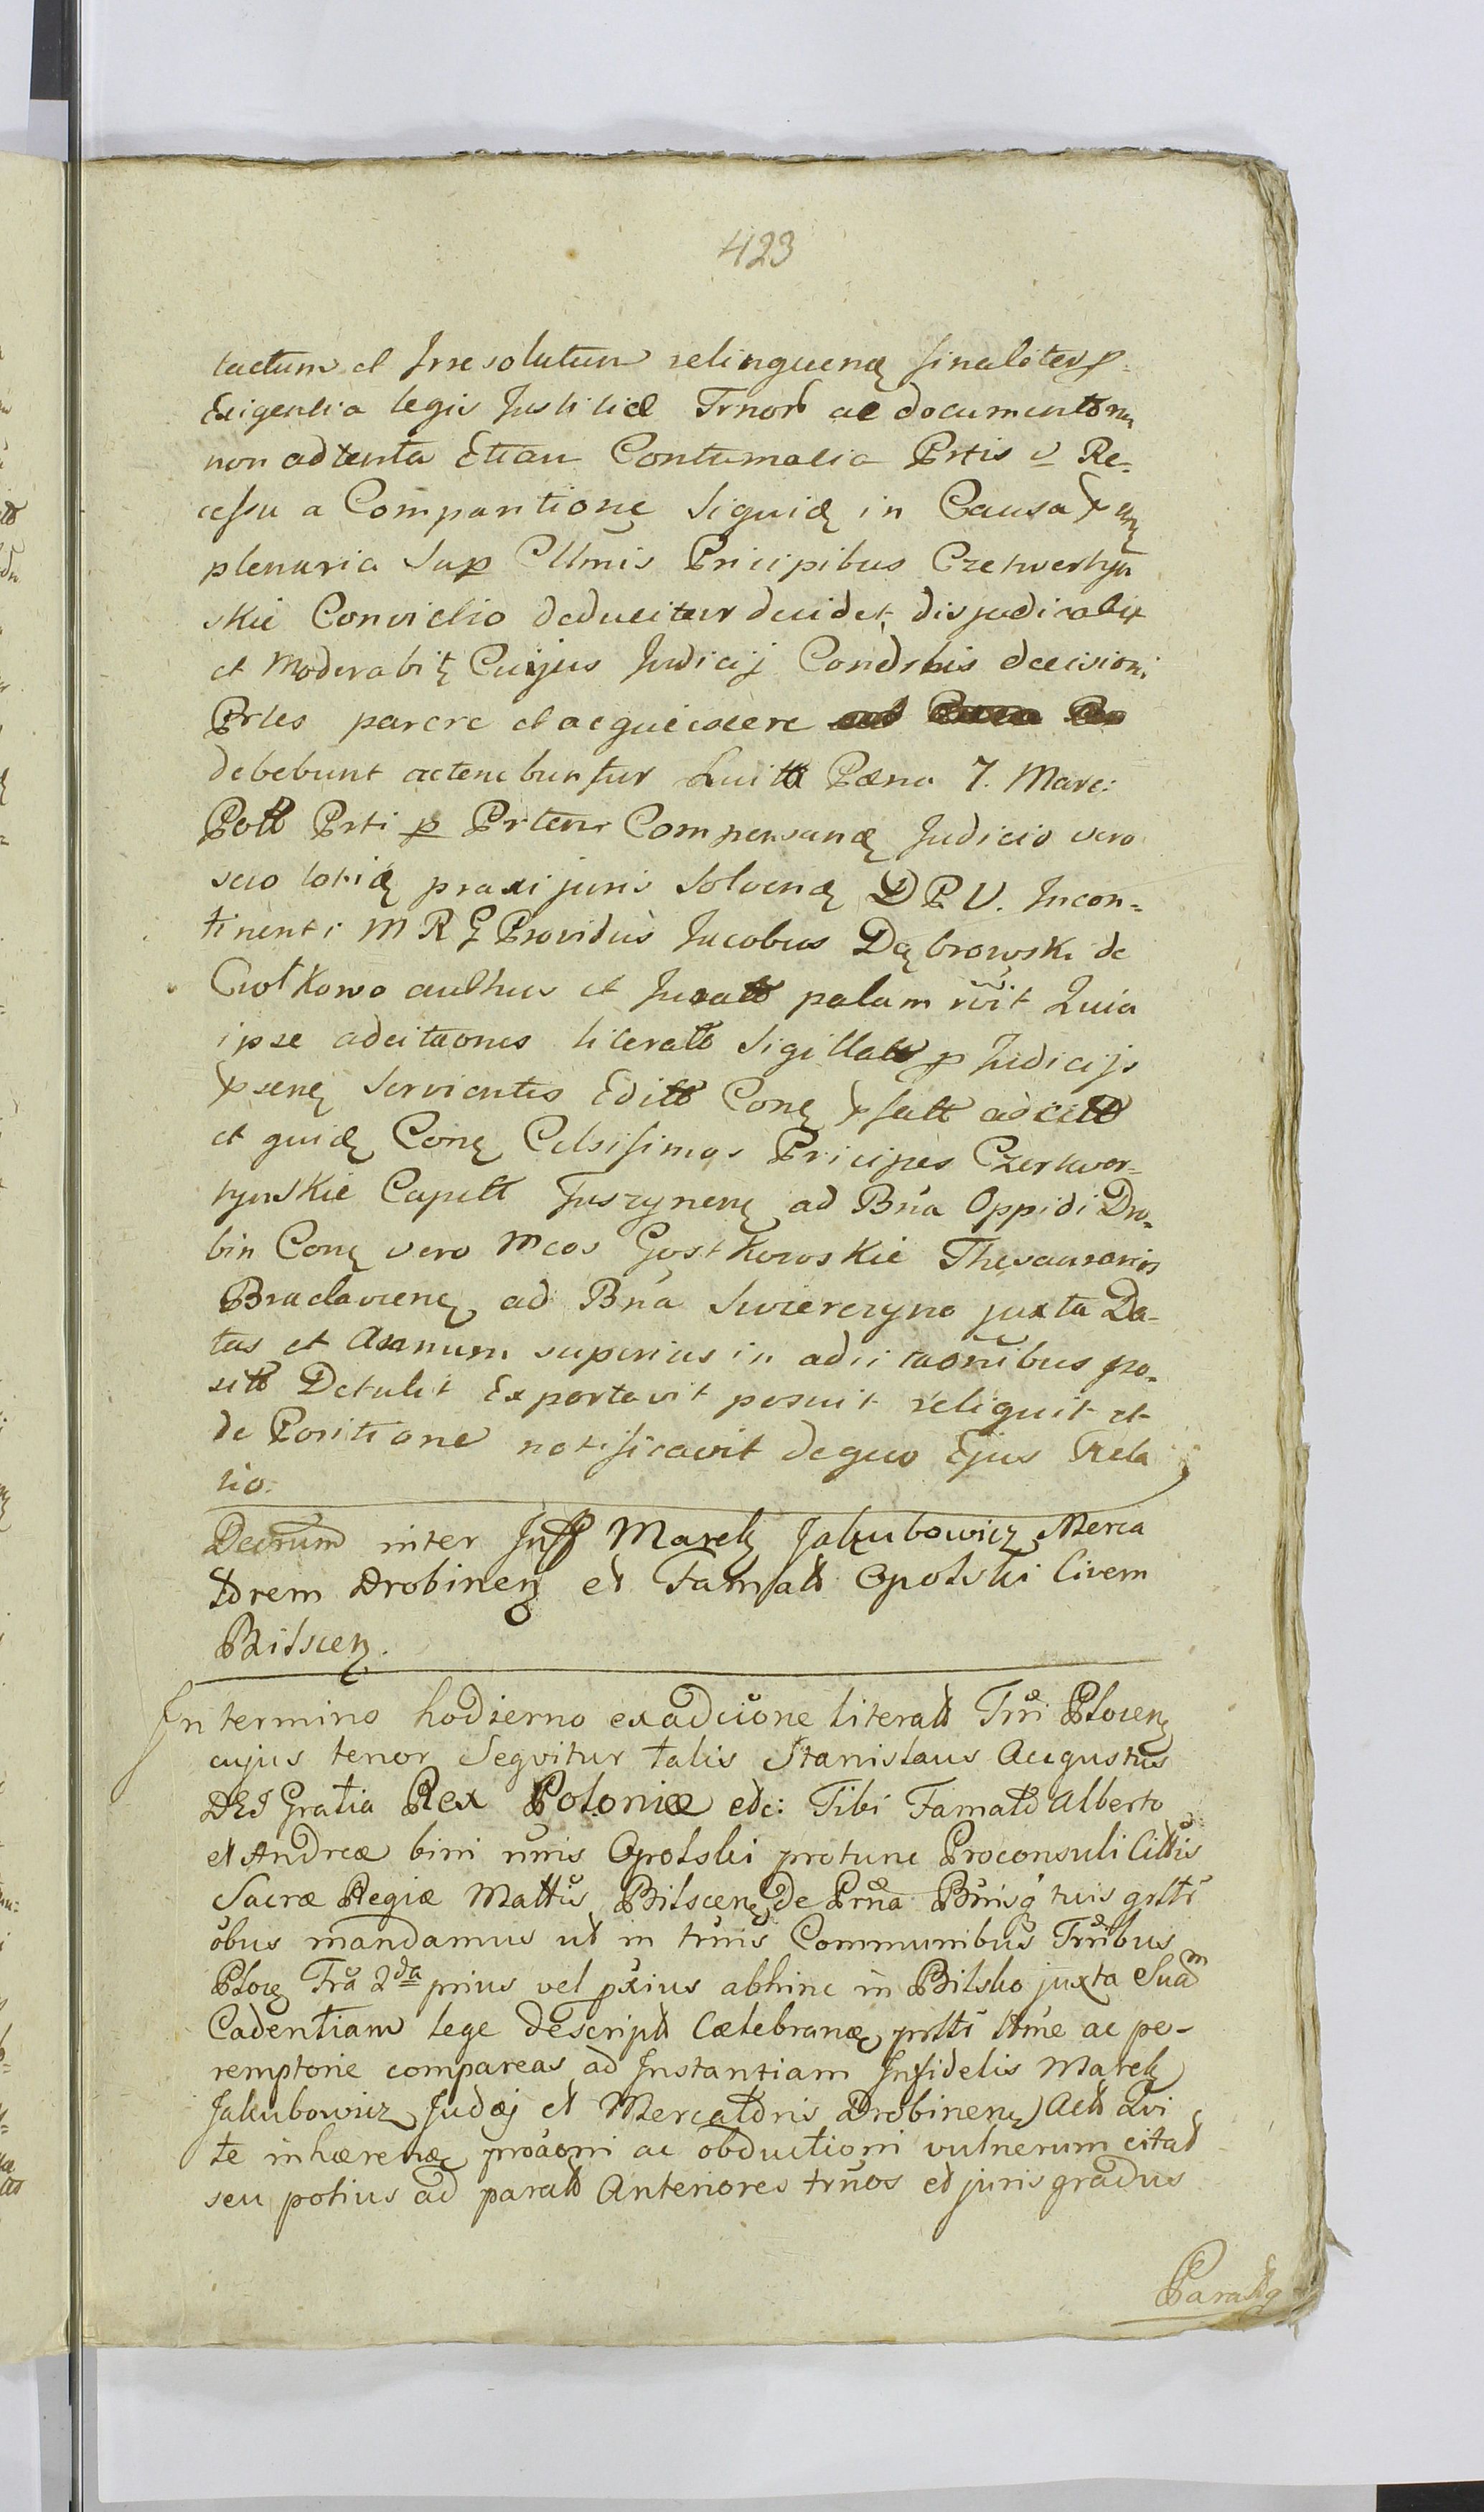 423
tactum et Irresolutum relinquenę finaliter p
Exigentia legis Justitiæ Trnor ac documentorum
non adtenta Etiam Contumacia Prtis v Re-
cessu a Comparitione siquidę in Causa
plenaria Sup Cllmis Pricipibus Czetwertyń
skie Convictio deducitur decidet, disjudicabit
et Moderabit Cuijus Judicij Condrbis decisioni
Prtes parere et acquiescere
debebunt ac tenebuntur Luitt Pæna 7. Marc:
Pott Prti p Prtem Compensanę Judicio vero
sero totidę praxi juris Solvenę D P. V. Incon-
tinenti M R G Providus Jacobus Dąbrowski de
Ciołkowo authus et Juratt palam rvit Quia
ipse adcitaones literatt Sigillatt p Judicijs
pseng Servientis Editt Coną psatt adcitt
et quidę Coną Celsissimos Pricipes Czertwer-
tynskie Capitt Juszynenę ad Bna Oppidi Dro-
bin Coną vero Mcos Gostkowskie Thesaurarios
Braclaviene ad Bna Swierczyno juxta Da-
tas et Asanum superius in adcitaonibus po-
sitt Detulit Exportavit posuit reliquit et
de Positione notificavit de quo Ejus Rela
tio.
Decrum inter Inff Marek Jakubowicz Merca
torem Drobineñ et Famatt Opolski Civem
Bilscen.
In termino hodierno ex adcione literatt Trri Plocen
cujus tenor Seqvitur talis Stanislaus Augustus
DEI Gratia Rex Poloniæ etc: Tibi Famatt Alberto
et Andreæ bini nris Opolski protunc Proconsuli Cittis
Sacræ Regiæ Mattis Bilscen De Prna Bnisq tuis grltr
obus mandamus ut in trnis Communibus Trribus
Ploc Tra 2da prius vel pxius abhinc in Bilsko juxta Suam
Cadentiam lege descript Cælebranæ prltr ltme ac pe-
remptorie compareas ad Instantiam Infidelis Marek
Jakubowicz Judæj et Mercatoris Drobinen Actt Qvi
te inhærenæ proaoni ac obductioni vulnerum citatt
seu potius ad paratt Anteriores trnos et juris gradus
Parattq